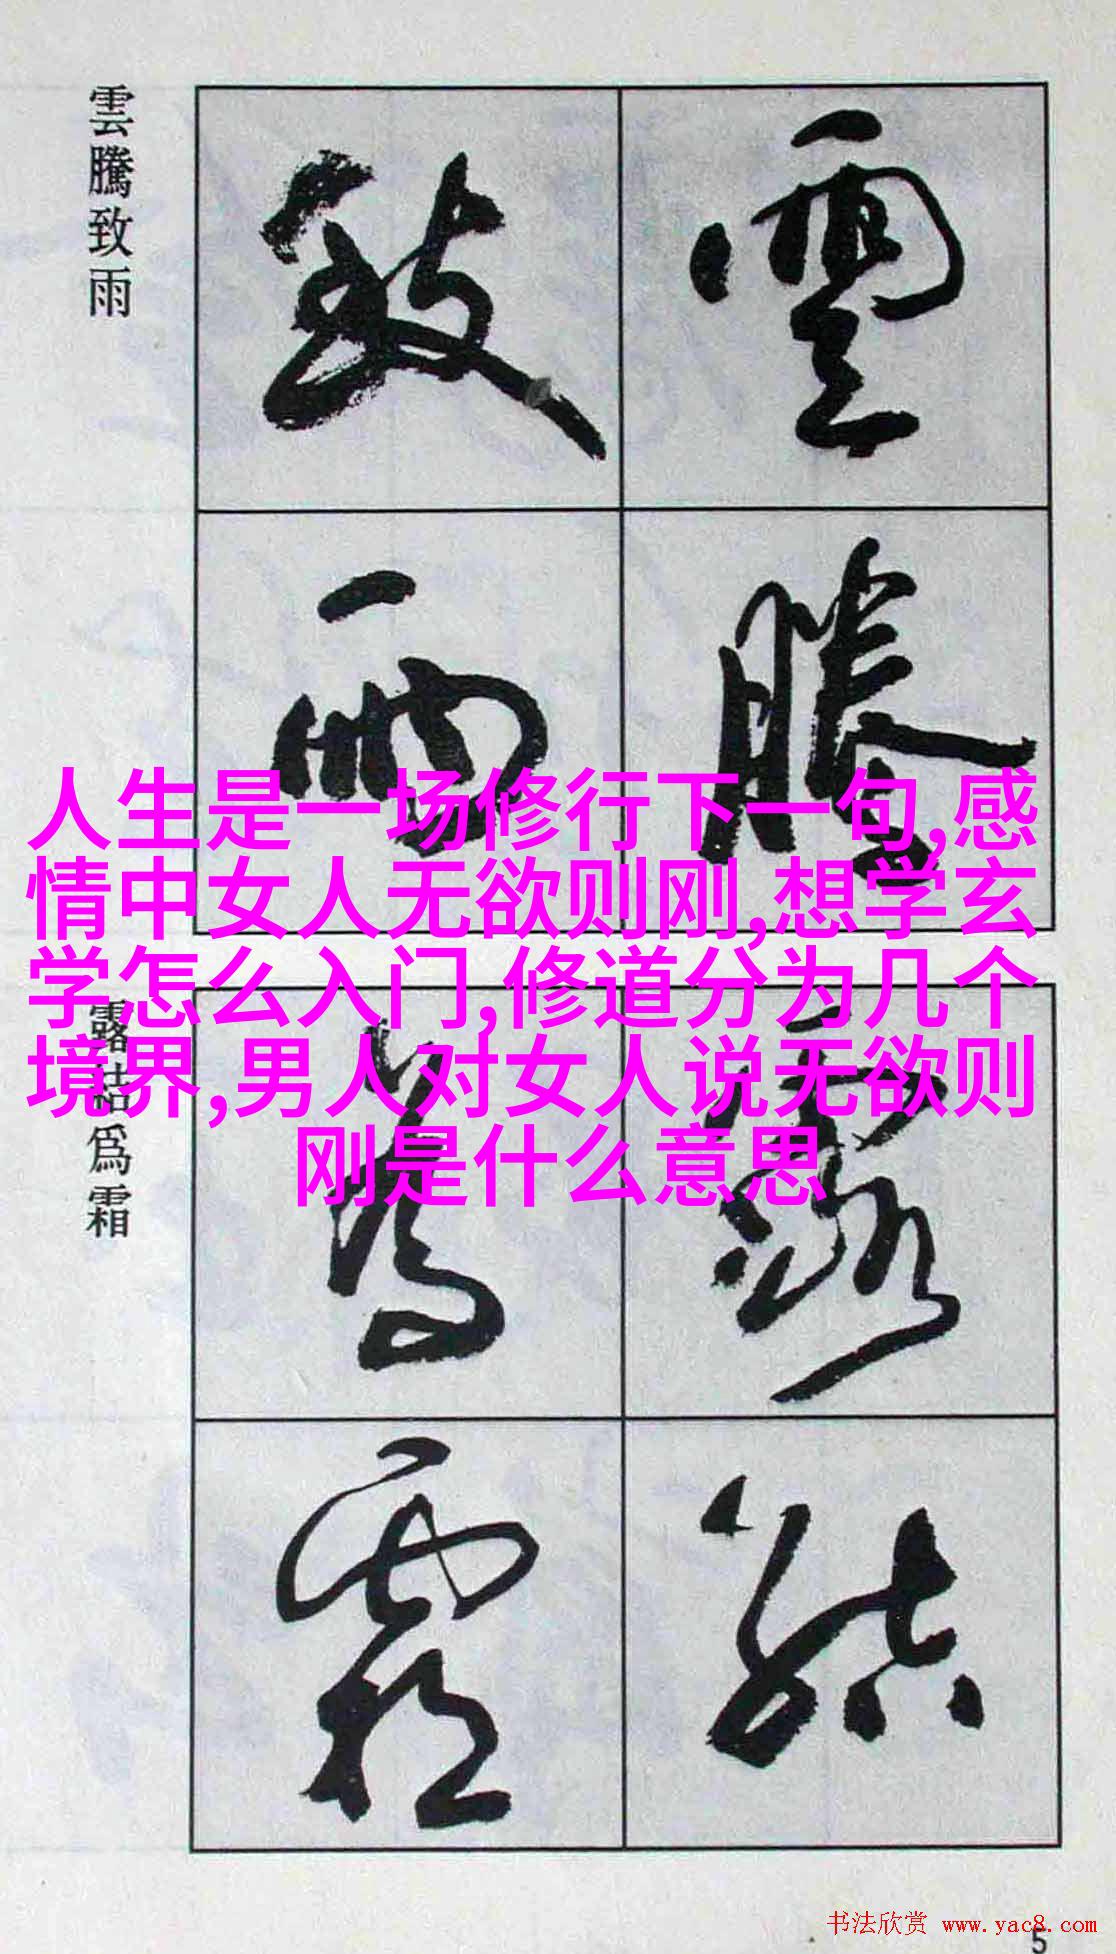 雲騰致雨
雲
騰
致
雨
人生是一场修行下一句,感
情中女人无欲则刚,想学玄
学怎么入门,修道分为几个
境界,男人对女人说无欲则
刚是什么意思
露結爲霜
露
結
爲
霜
书法欣赏 www.yac8.com
5